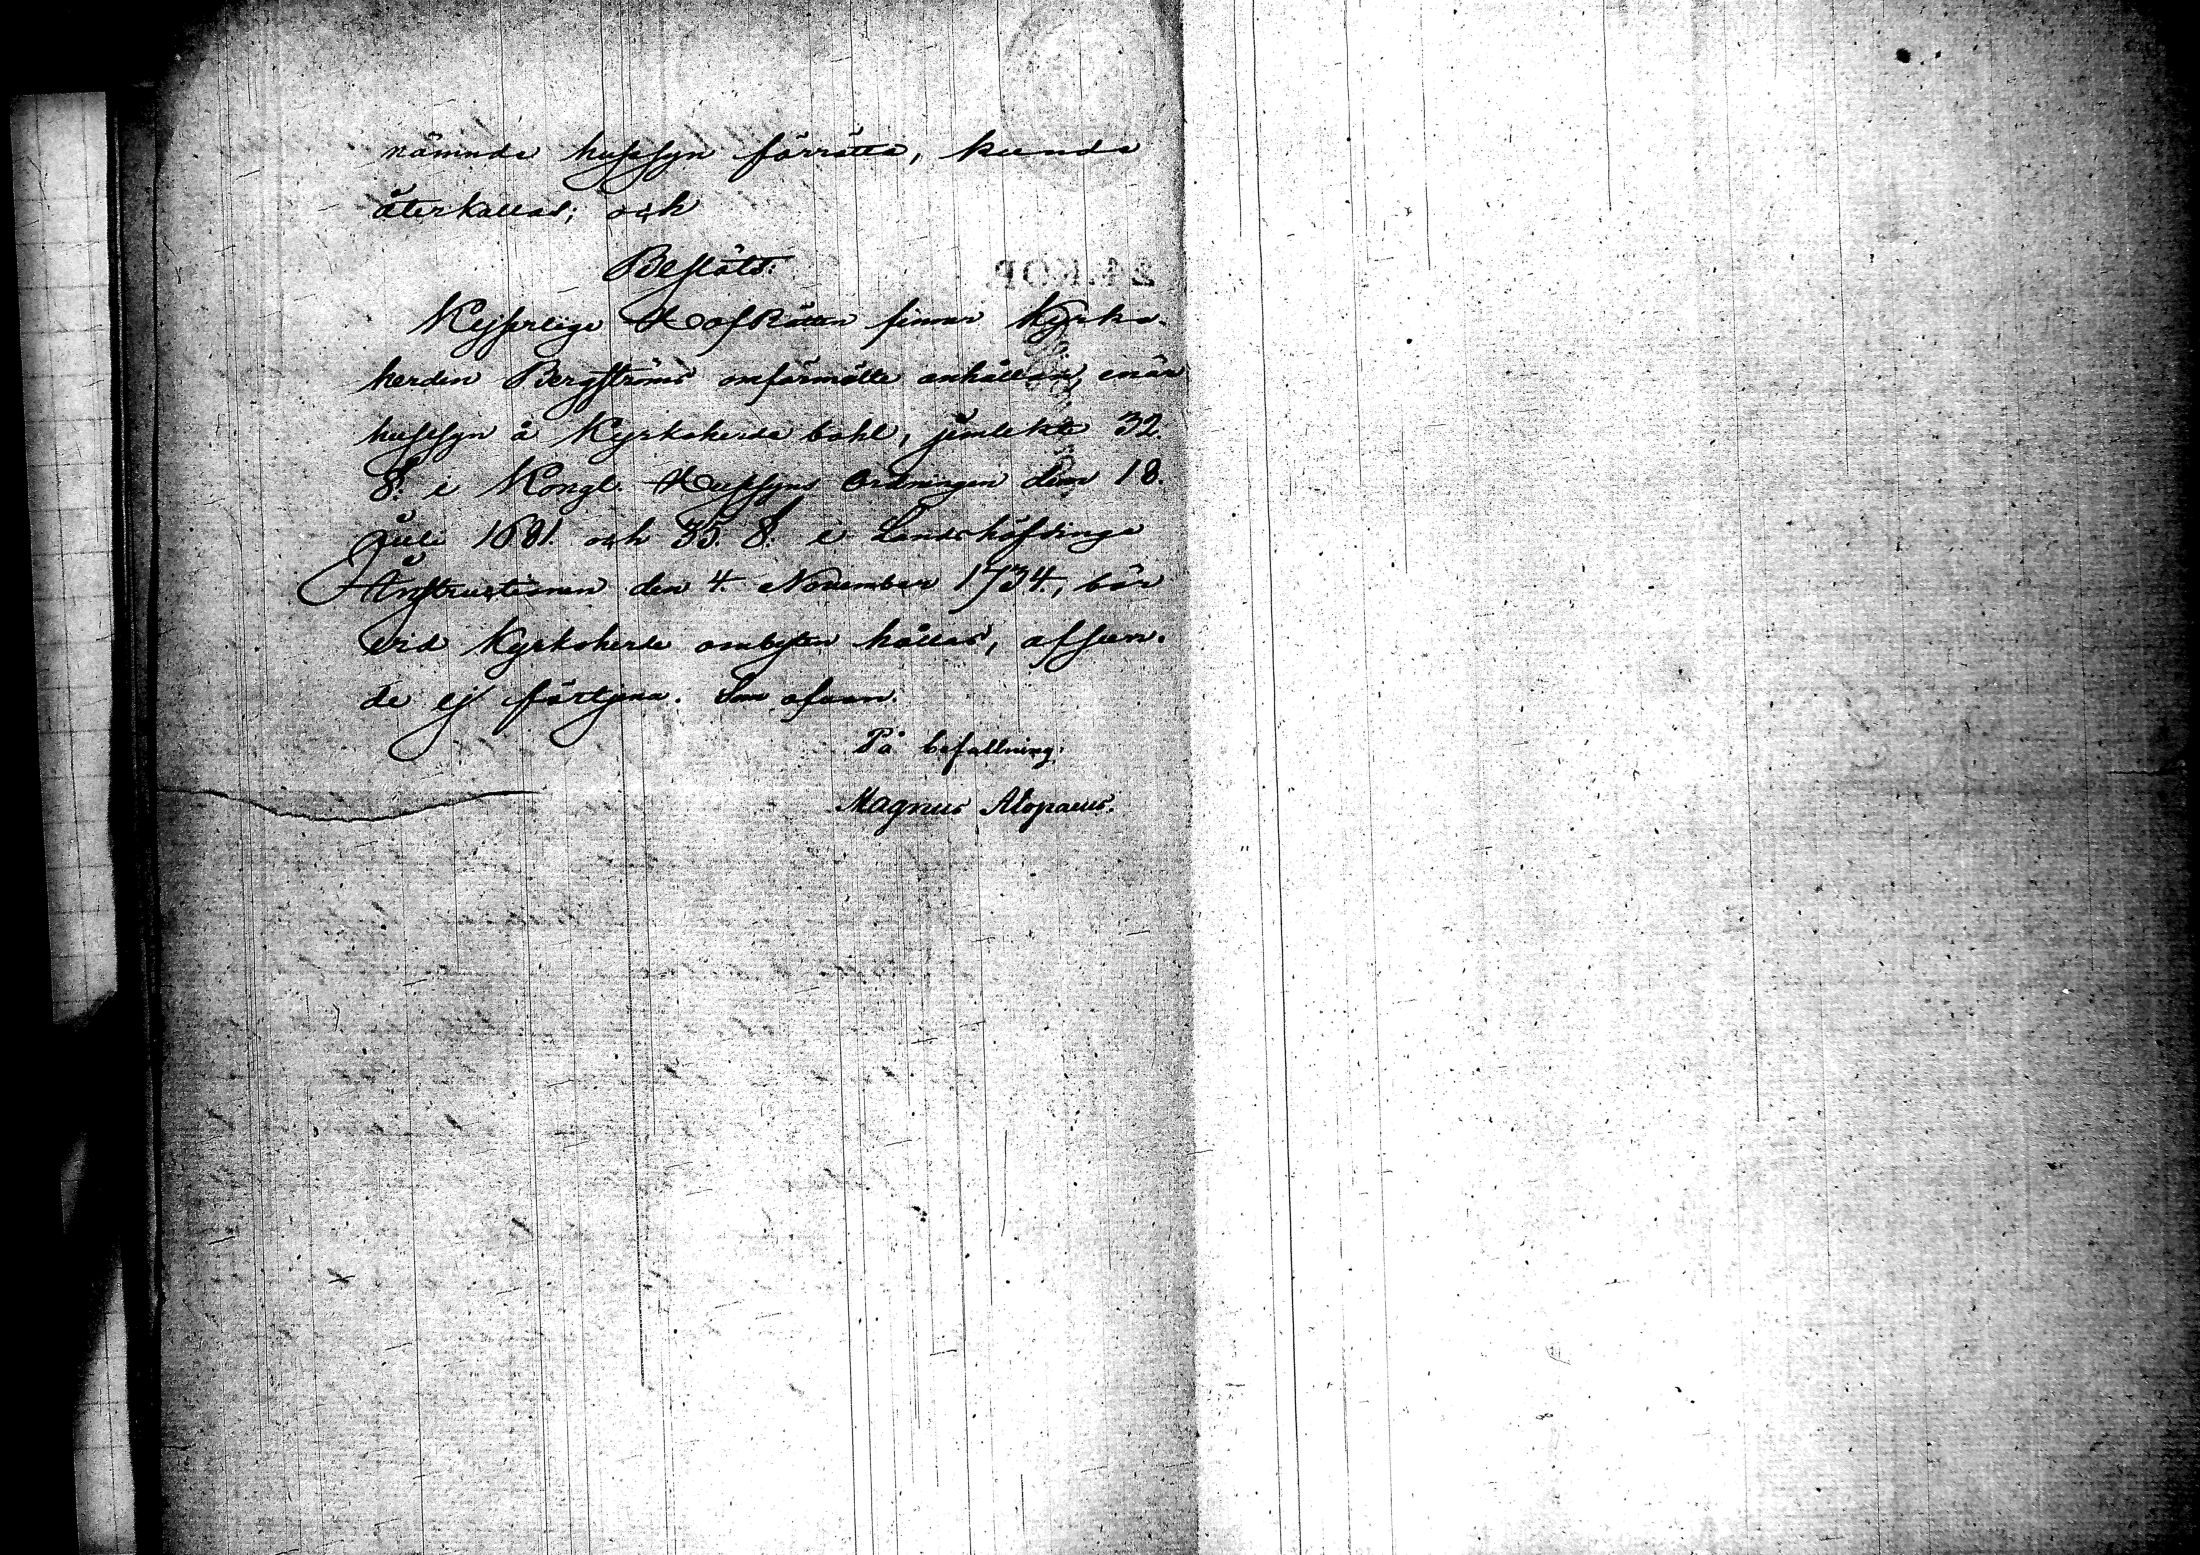 nämnda hussyn förrätta, kunde
återkallas; och
Beslöts:
Kejserlige HofRätten finner Kyrko-
herden Bergströms omförmälte anhållan, enär
hussyn å Kyrkoherde bohl, jemlikt 32.
§. i Kongl. Hussyns Ordningen den 18.
Juli 1681. och 35. §. i Landshöfdinge
Instructionen den 4. November 1734., bör
vid Kyrkoherde ombyten hållas, afseen-
de ej förtjena. Som ofvan.
På befallning:
Magnus Alopaeus.
24.KOP.